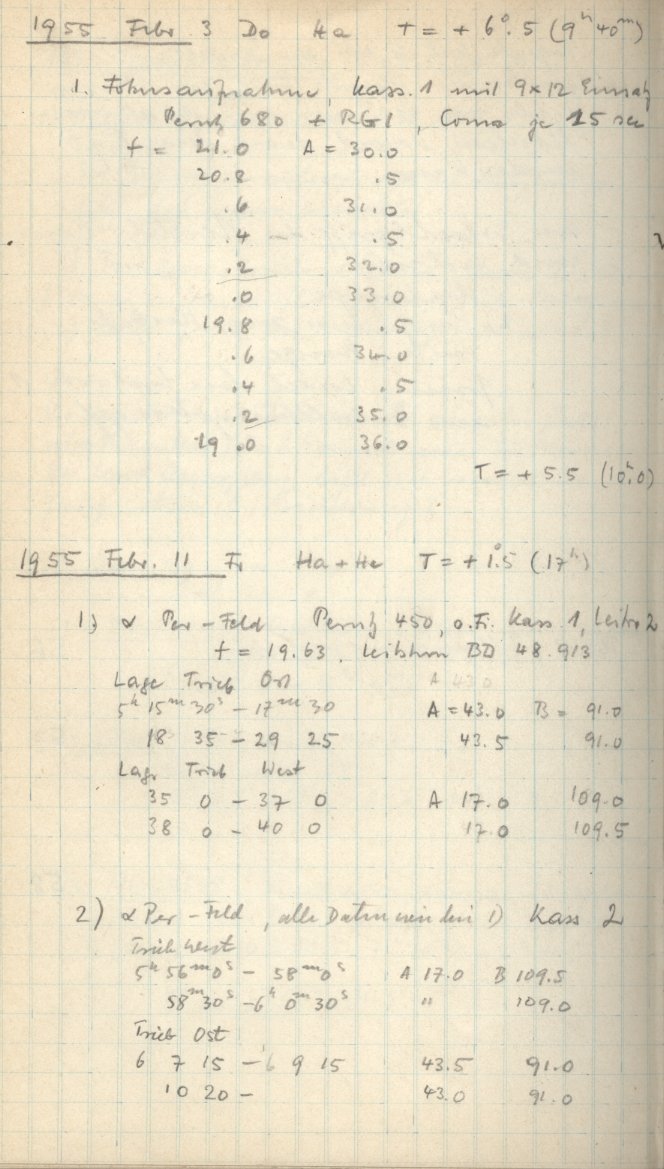 1955 Febr. 3 Do Ha T = + 6°.5 (9h 40m)
1. Fokusaufnahme, Kass. 1 mit 9x12 Einsatz
Perutz 680 + RG1, Coma je 15 sec
f = 21.0 A = 30.0
20.8 .5
.6 31.0
.4 — .5
.2 32.0
.0 33.0
19.8 .5
.6 34.0
.4 .5
.2 35.0
19.0 36.0
T = + 5.5 (10h.0)
1955 Febr. 11 Fr Ha + He T = + 1°.5 (17h)
1) α Per-Feld Perutz 450, o.Fi. Kass. 1, Leitro 2
f = 19.63, Leitstern BD 48.913
Lage Trieb Ost A 43.0
5h 15m 30s - 17m 30 A = 43.0 B = 91.0
18 35 - 29 25 43.5 91.0
Lage Trieb West
35 0 - 37 0 A 17.0 109.0
38 0 - 40 0 17.0 109.5
2) α Per-Feld, alle Daten wie bei 1) Kass 2
Trieb West
5h 56m 0s - 58m 0s A 17.0 B 109.5
58m 30s - 6h 0m 30s " 109.0
Trieb Ost
6 7 15 - 6 9 15 43.5 91.0
10 20 - 43.0 91.0